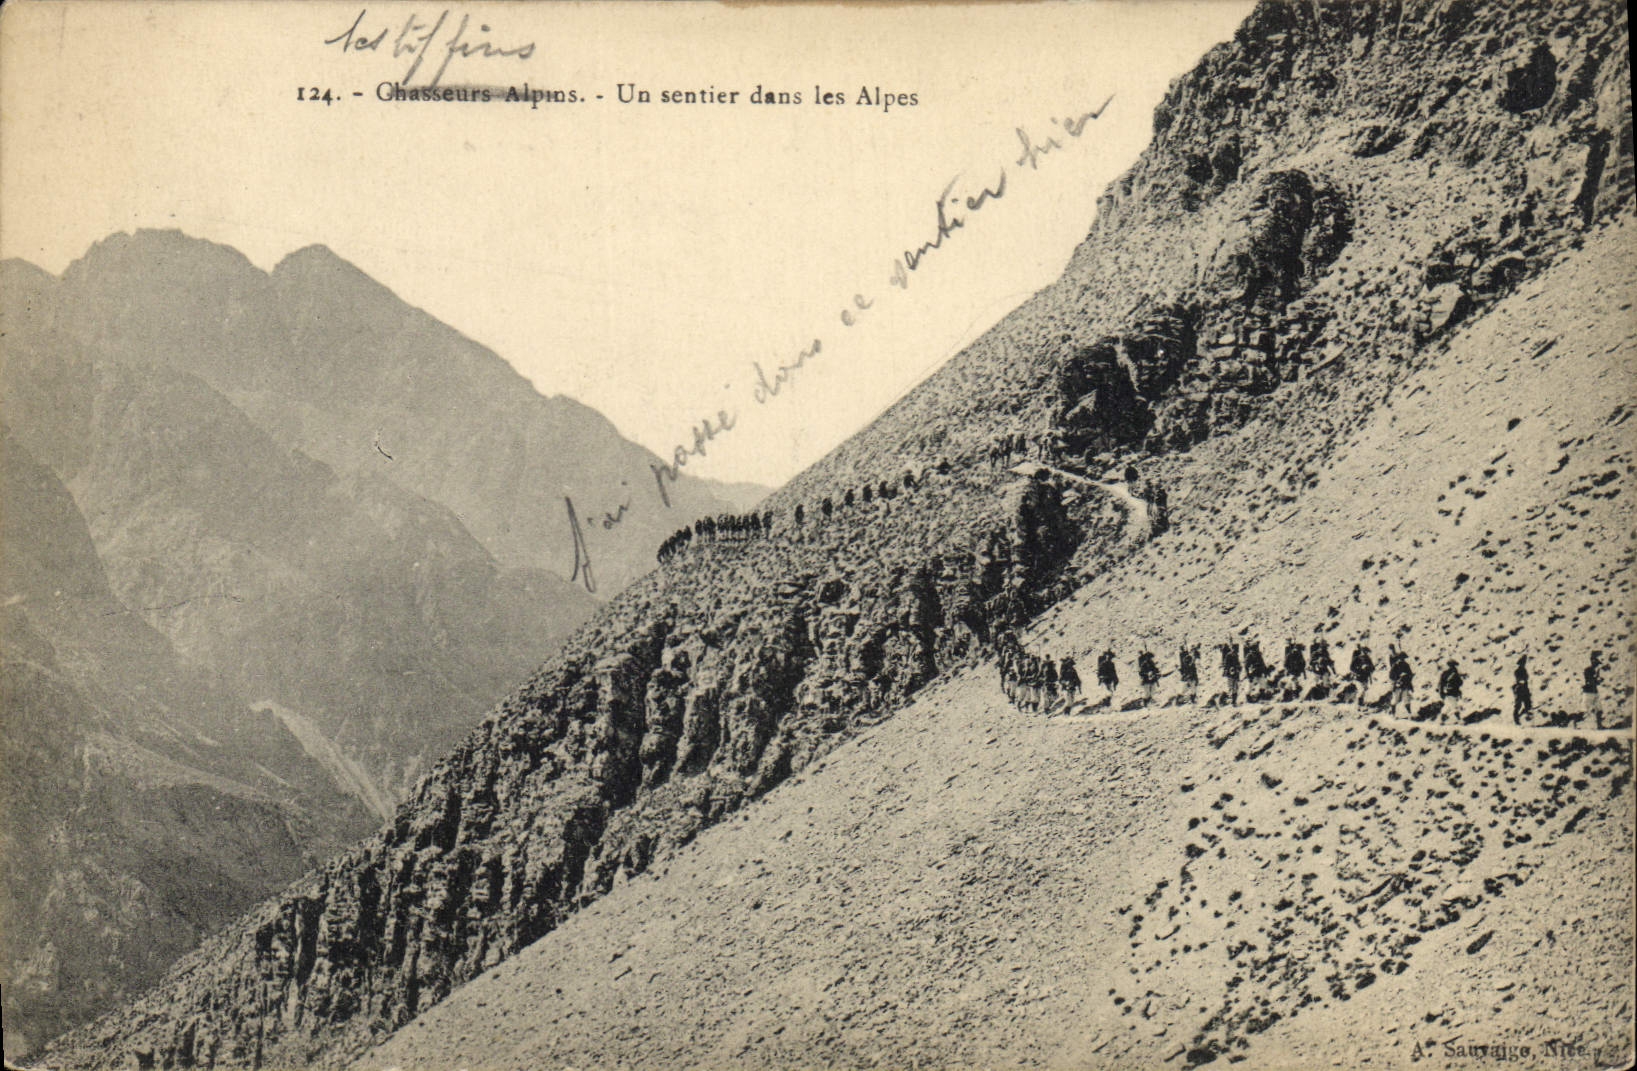 les biffins
124. - Chasseurs Alpins. - Un sentier dans les Alpes
J'ai passé dans ce sentier hier
A. Sauvaigo, Nice